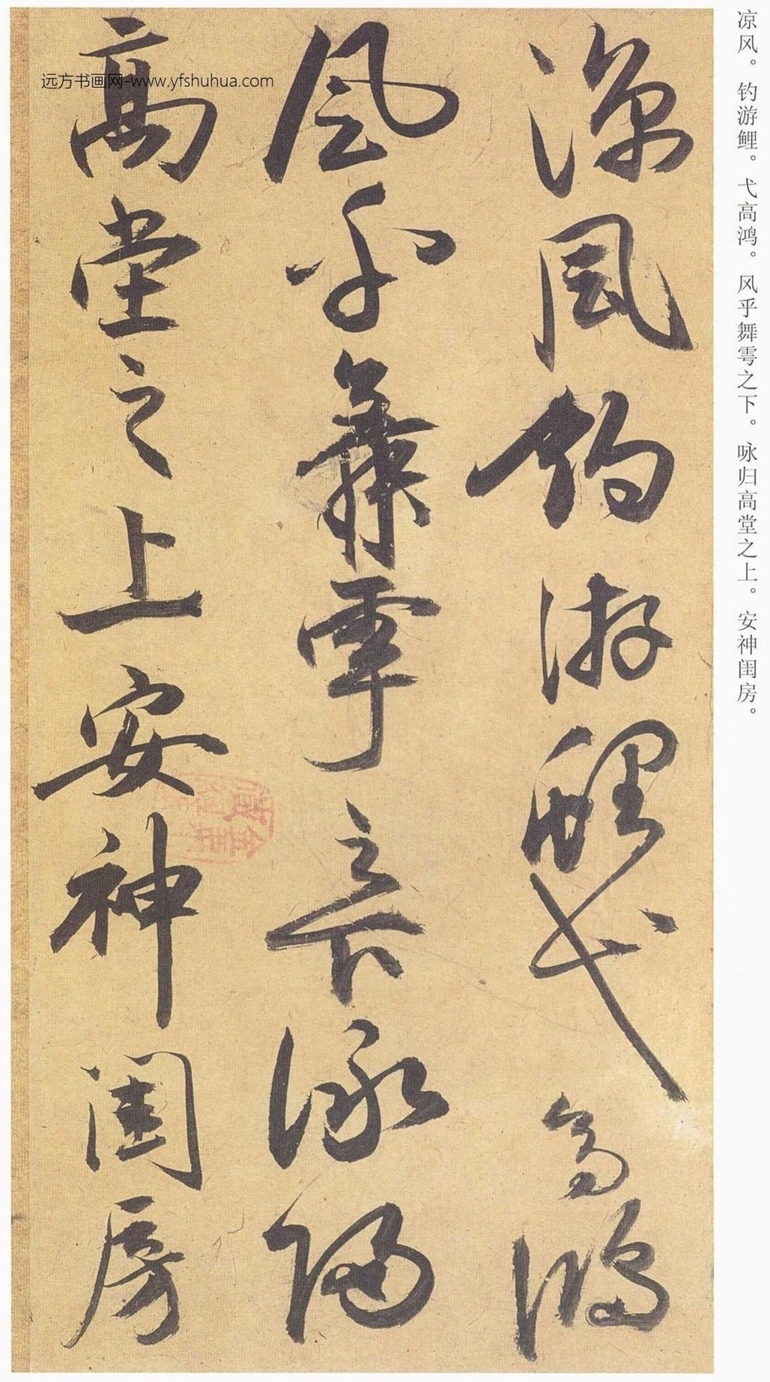 凉风。钓游鲤。弋高鸿。风乎舞雩之下。咏归高堂之上。安神闺房。
凉风钓游鲤弋高鸿
风乎舞雩之下咏归
高堂之上安神闺房
远方书画网-www.yfshuhua.com